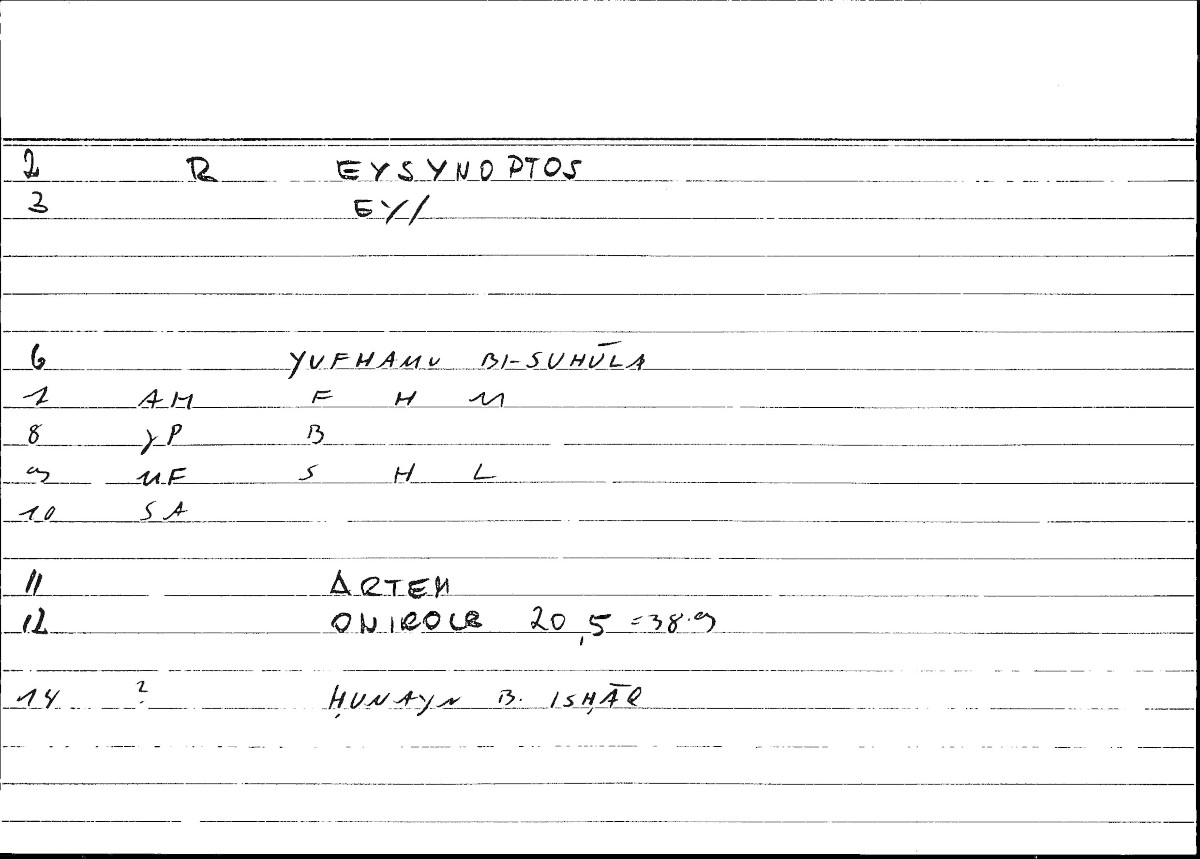 2 R EYSYNOPTOS
3 EY/
6 YUFHAMU BI-SUHŪLA
7 AM F H M
8 YP B
9 MF S H L
10 SA
11 ARTEM
12 ONIROCR 20,5 =38.9
14 2 ḤUNAYN B. ISḤĀQ